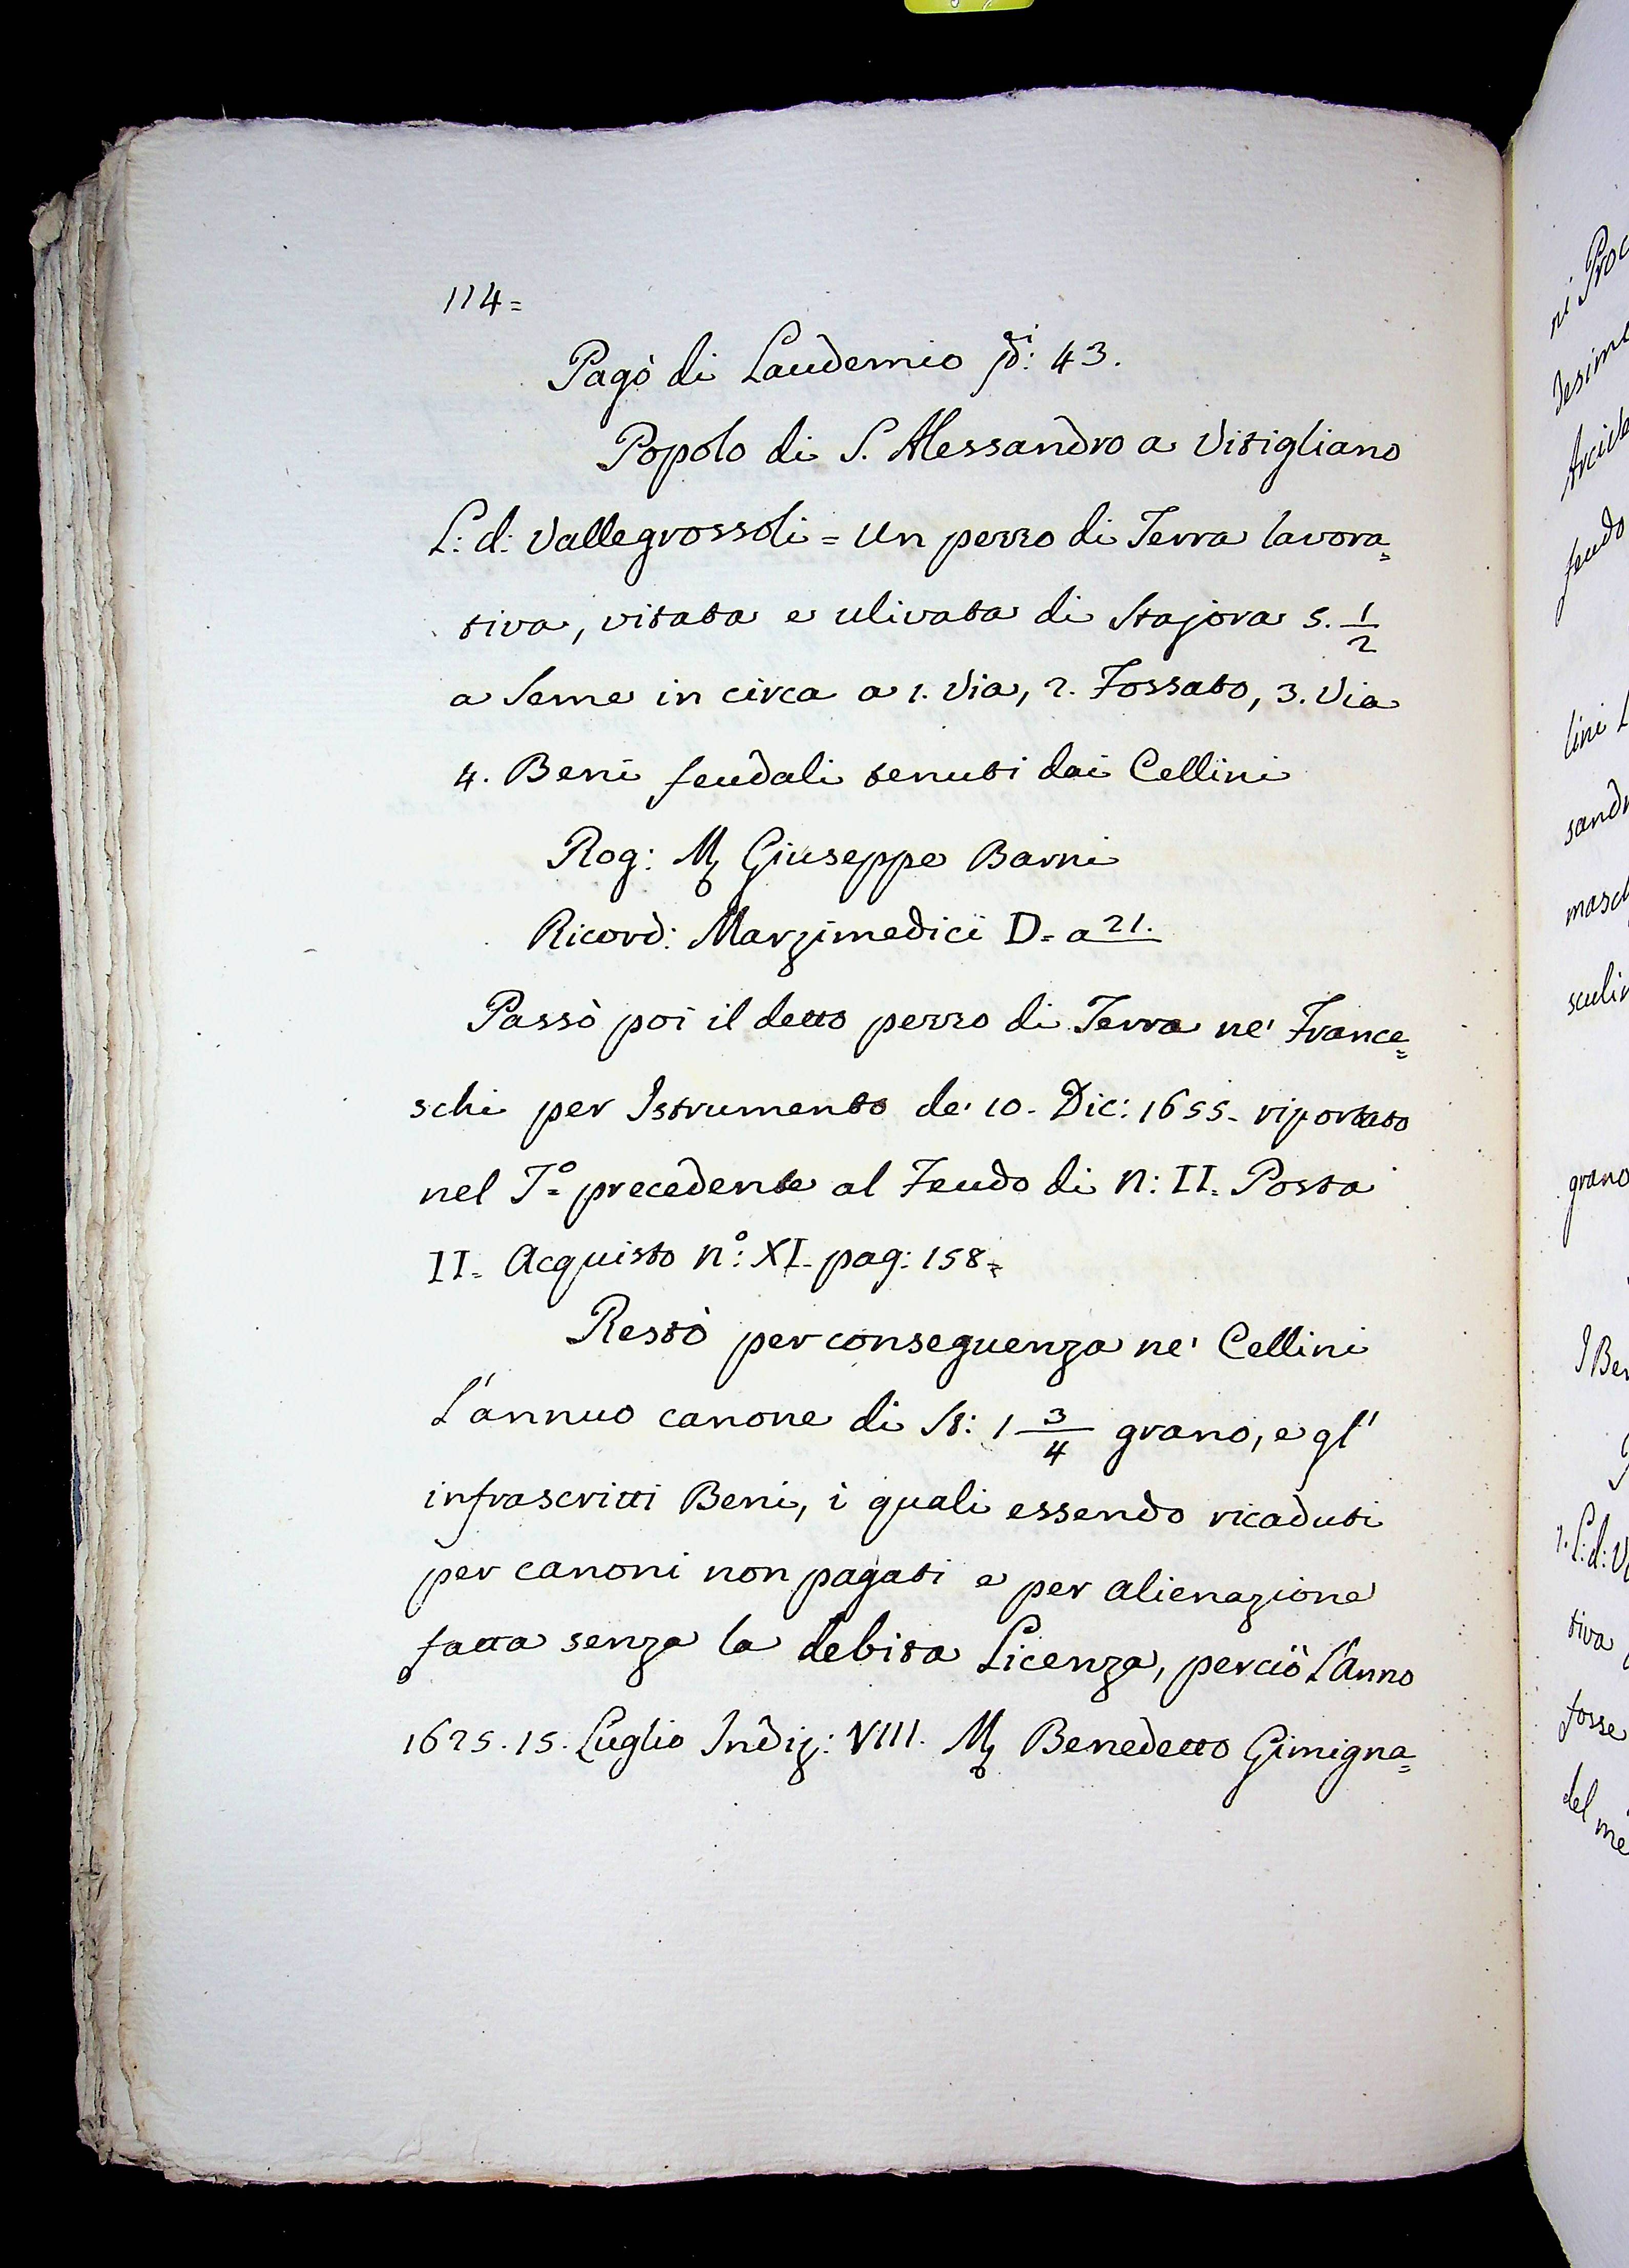 114=
Pagò di Laudemio di: 43.
Popolo di S. Alessandro a Vitigliano
L: d: Vallegrossoli = Un pezzo di Terra lavora=
tiva, vitata e ulivata di Stajora 5. 1/2
a Seme in circa a 1. Via, 2. Fossato, 3. Via
4. Beni feudali tenuti dai Cellini
Rog: M Giuseppe Barni
Ricord: Marzimedici D= a 21.
Passò poi il detto pezzo di Terra ne' France=
schi per Istrumento de' 10. Dic: 1655. riportato
nel T.º precedente al Feudo di N: II. Posta
II. Acquisto nº: XI. pag: 158=
Restò per conseguenza ne' Cellini
l'annuo canone di St: 1 3/4 grano, e gl'
infrascritti Beni, i quali essendo ricaduti
per canoni non pagati e per alienazione
fatta senza la debita Licenza, perciò l'Anno
1625. 15. Luglio Indiz: VIII. M Benedetto Gimigna=
ni Proc
desim
feudo
lini
sand
masc
sculin
grano
I Ben
L: d: V
tiva
fosse
del me